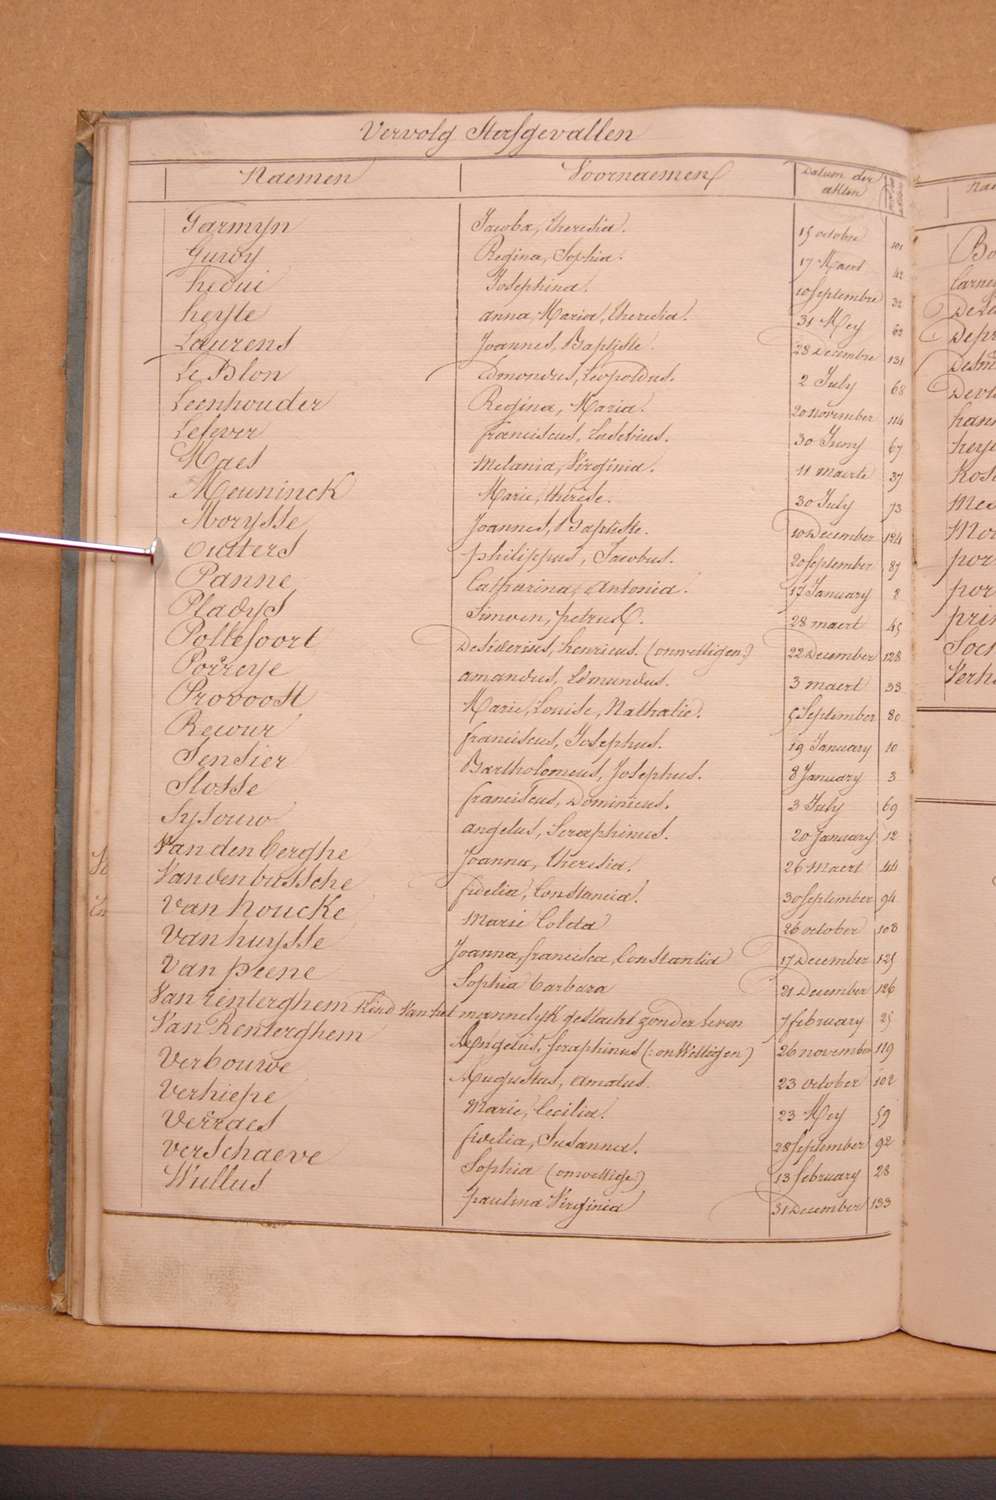 Vervolg Stafgevallen
Naemen Voornaemen Datum der akten
Garmyn Jacoba, theresia. 15 octobre 101
Guroy Regina, Sophia. 17 Maert 42
hedui Josephina. 10 Septembre 32
heyte anna, Maria, theresia. 31 Mey 62
Laurens Joannes, Baptiste. 28 Decembre 131
Le Blon Edmondus, Leopoldus. 2 July 68
Leenhouder Regina, Maria. 20 november 114
Lefever franciscus, Eusebius. 30 Juny 67
Maes Melania, Virginia. 11 maerte 37
Meuninck Marie, thérèse. 30 July 73
Morysse Joannes, Baptiste. 10 December 124
Outters philippus, Jacobus. 20 September 87
Panne Catharina, Antonia. 17 January 8
Pladys Simoen, petrus. 28 maert 45
Pollefoort Desiderius, henricus. (onwettigen) 22 December 128
Porreye amandus, Edmundus. 3 maert 33
Provoost Marie, Louise, Nathalie. 5 September 80
Recour franciscus, Josephus. 19 January 10
Sensier Bartholomeus, Josephus. 8 January 3
Stosse franciscus, Dominicus. 3 July 69
Sysouw angelus, Seraphinus. 20 January 12
Van den berghe Joanna, theresia. 26 Maert 44
Vandenbussche fidelia, Constancia. 30 September 94
Van houcke Marie Colda 26 october 103
Vanhuysse Joanna, francisca, Constantia 17 December 125
Van peene Sophia barbara 21 December 126
Van renterghem Kind Van het mannelyk geslacht zonder leven 7 february 25
Van Renterghem Angelus, seraphinus (: onWettigen) 26 november 119
Verbouwe Augustus, amatus. 23 october 102
Verhiepe Marie, Cecilia. 23 Mey 59
Verraes fidelia, Susanna. 28 September 92
Verschaeve Sophia (onwettige) 13 february 28
Wullus paulina Virginia 31 December 133